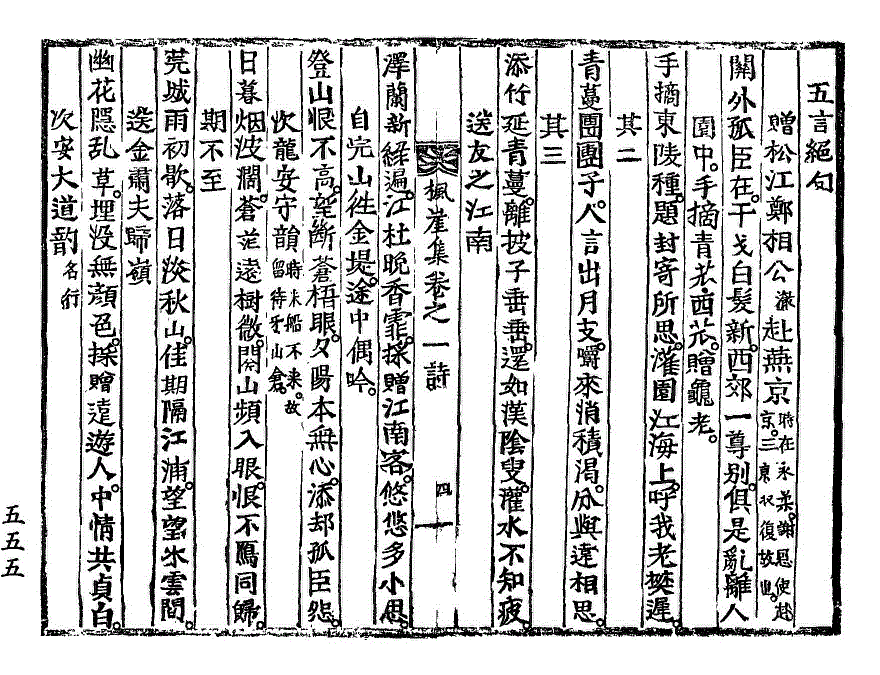 五言絕句
贈松江鄭相公澈赴燕京時在永柔。謝恩使赴京。三京収復故也。
關外孤臣在。干戈白髮新。西郊一尊別。俱是亂離人
園中。手摘靑苽西苽。贈龜老。
手摘東陵種。題封寄所思。灌園江海上。呼我老樊遲。
其二
靑蔓團團子。人言出月支。嚼來消積渴。分與遠相思。
其三
添竹延靑蔓。離披子垂垂。還如漢陰叟。灌水不知疲。
送友之江南
楓崖集卷之一 詩 四
澤蘭新綠遍。江杜晚香霏。採贈江南客。悠悠多小思。
自完山徃金堤。途中偶吟。
登山恨不高。望斷蒼梧眼。夕陽本無心。添却孤臣怨。
次龍安守韻時米船不來。故留待牙山倉。
日暮烟波濶。蒼茫遠樹微。關山頻入眼。恨不鴈同歸。
期不至
莞城雨初歇。落日淡秋山。佳期隔江浦。望望水雲間。
送金肅夫歸嶺
幽花隱乱草。埋没無顏色。採贈遠遊人。中情共貞白。
次安大道韵名行
五五五